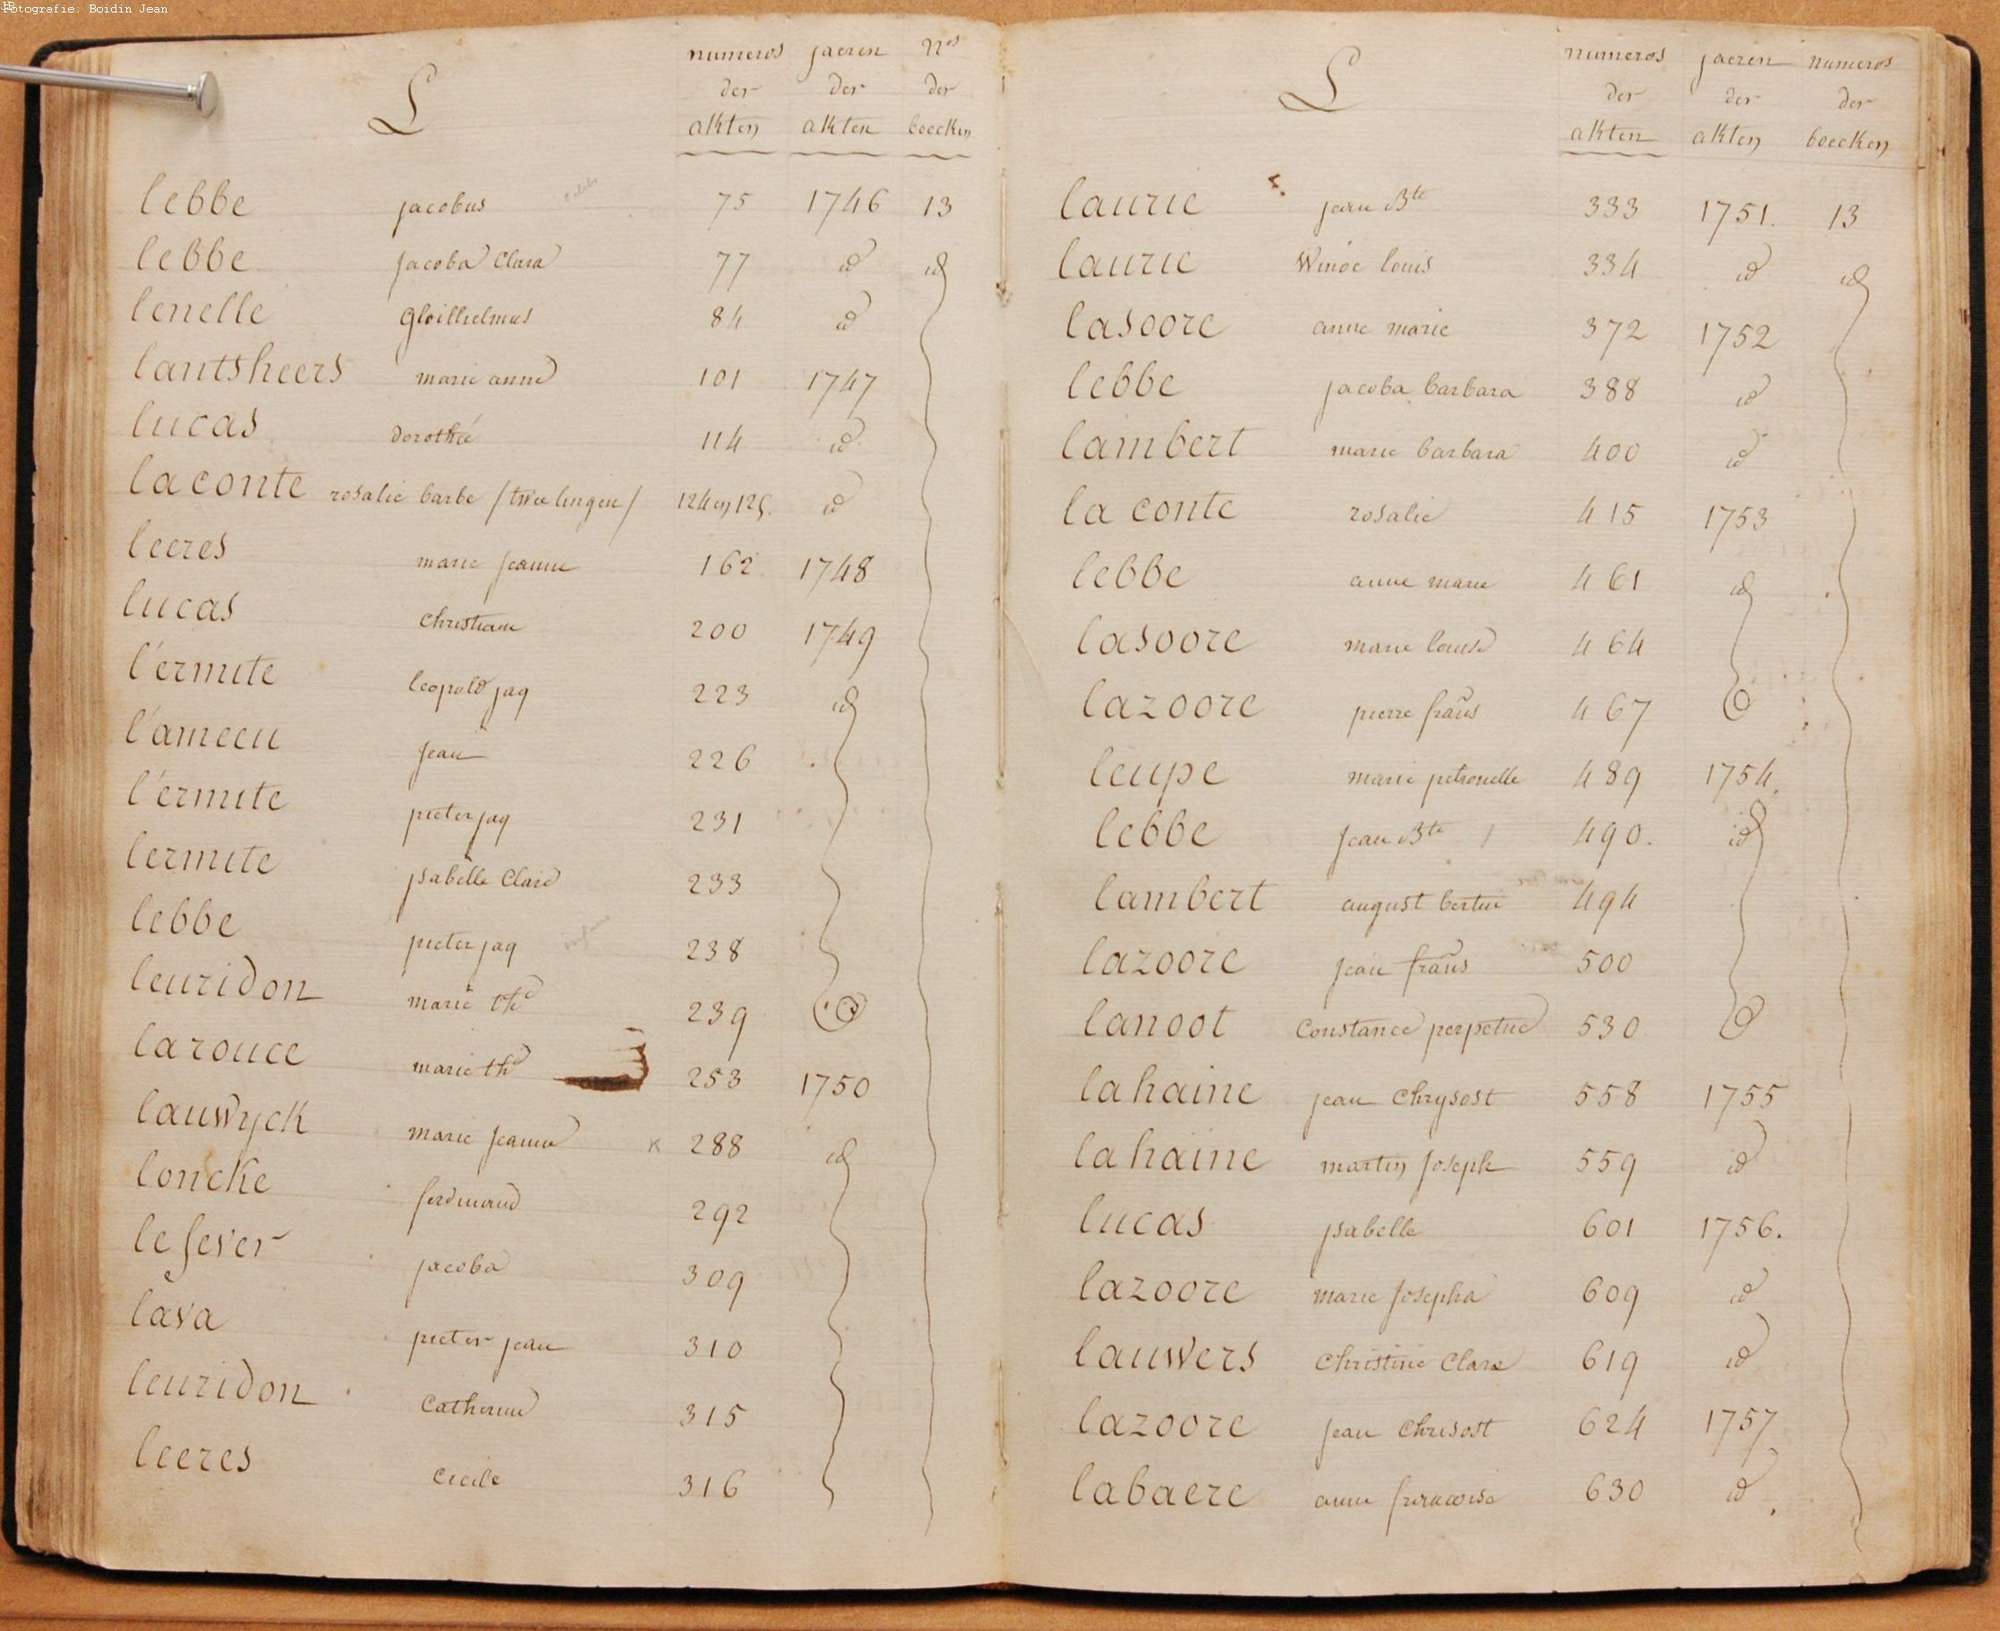 Fotografie. Boidin Jean
L
numeros der akten
jaeren der akten
Nos der boecken
lebbe jacobus 75 1746 13
lebbe jacoba Clara 77 id id
lenelle gloillielmus 84 id
lantsheers marie anne 101 1747
lucas dorothée 114 id
laconte rosalie barbe /twee lingen/ 124 en 125. id
leeres marie jeanne 162 1748
lucas Christiane 200 1749
l'ermite leopold jaq 223 id
l'ameeu jean 226
l'ermite pieter jaq 231
lermite ysabelle Claire 233
lebbe pieter jaq 238
leuridon marie the 239
larouce marie the 253 1750
lauwyck marie jeanne x 288 id
loncke ferdinand 292
lefever jacoba 309
lava pieter jean 310
leuridon Catherine 315
leeres Cecile 316
L
numeros der akten
jaeren der akten
numeros der boecken
laurie jean Bte 333 1751. 13
laurie Winoc louis 334 id id
lasoore anne marie 372 1752
lebbe jacoba barbara 388 id
lambert marie barbara 400 id
la conte rosalie 415 1753
lebbe anne marie 461 id
lasoore marie louise 464
lazoore pierre frans 467
leupe marie petronelle 489 1754.
lebbe jean Bte 490. id
lambert august bertin 494
lazoore jean frans 500
lanoot Constance perpetue 530
lahaine jean Chrysost 558 1755
lahaine martin joseph 559 id
lucas ysabelle 601 1756.
lazoore marie josepha 609 id
lauwers Christine Clara 619 id
lazoore jean Chrisost 624 1757
labaere anne francoise 630 id